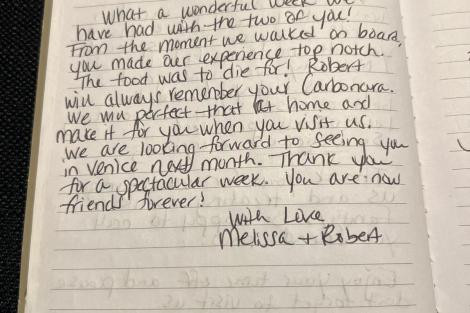 What a wonderful week we
have had with the two of you!
From the moment we walked on board,
you made our experience top notch.
The food was to die for! Robert
will always remember your Carbonara.
We will perfect that at home and
make it for you when you visit us.
We are looking forward to seeing you
in Venice next month. Thank you
for a spectacular week. You are now
friends forever!
With Love
Melissa + Robert